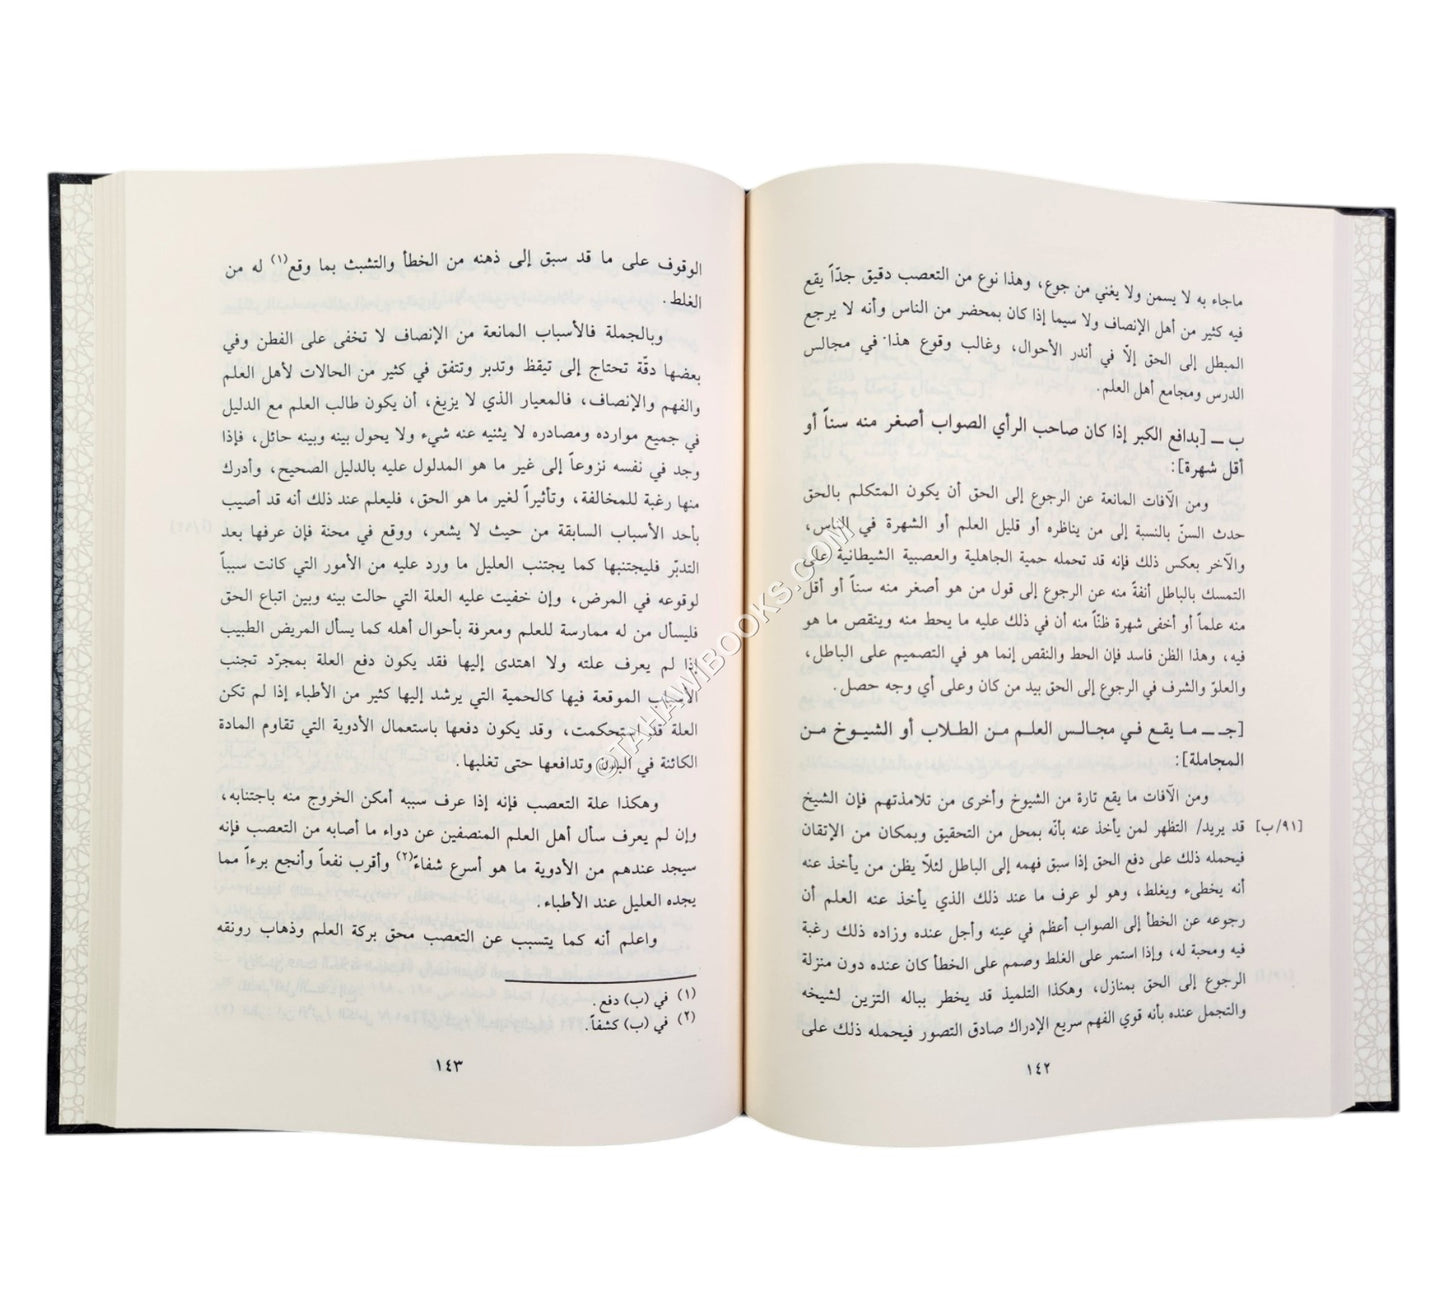 ماجاء به لا يسمن ولا يغني من جوع، وهذا نوع من التعصب دقيق جدّاً يقع
فيه كثير من أهل الإنصاف ولا سيما إذا كان بمحضر من الناس وأنه لا يرجع
المبطل إلى الحق إلّا في أندر الأحوال، وغالب وقوع هذا في مجالس
الدرس ومجامع أهل العلم.
ب ــ [بدافع الكبر إذا كان صاحب الرأي الصواب أصغر منه سناً أو
أقل شهرة]:
ومن الآفات المانعة عن الرجوع إلى الحق أن يكون المتكلم بالحق
حدث السنّ بالنسبة إلى من يناظره أو قليل العلم أو الشهرة في الناس،
والآخر بعكس ذلك فإنه قد تحمله حمية الجاهلية والعصبية الشيطانية على
التمسك بالباطل أنفةً منه عن الرجوع إلى قول من هو أصغر منه سناً أو أقل
منه علماً أو أخفى شهرة ظنّاً منه أن في ذلك عليه ما يحط منه وينقص ما هو
فيه، وهذا الظن فاسد فإن الحط والنقص إنما هو في التصميم على الباطل،
والعلوّ والشرف في الرجوع إلى الحق بيد من كان وعلى أي وجه حصل.
[جـ ــ ما يقع في مجالس العلم من الطلاب أو الشيوخ من
المجاملة]:
ومن الآفات ما يقع تارة من الشيوخ وأخرى من تلامذتهم فإن الشيخ
[٩١/ب] قد يريد/ التظهر لمن يأخذ عنه بأنّه بمحل من التحقيق وبمكان من الإتقان
فيحمله ذلك على دفع الحق إذا سبق فهمه إلى الباطل لئلّا يظن من يأخذ عنه
أنه يخطىء ويغلط، وهو لو عرف ما عند ذلك الذي يأخذ عنه العلم أن
رجوعه عن الخطأ إلى الصواب أعظم في عينه وأجل عنده وزاده ذلك رغبة
فيه ومحبة له، وإذا استمر على الغلط وصمم على الخطأ كان عنده دون منزلة
الرجوع إلى الحق بمنازل، وهكذا التلميذ قد يخطر بباله التزين لشيخه
والتجمل عنده بأنه قوي الفهم سريع الإدراك صادق التصور فيحمله ذلك على
١٤٢
الوقوف على ما قد سبق إلى ذهنه من الخطأ والتشبث بما وقع(١) له من
الغلط.
وبالجملة فالأسباب المانعة من الإنصاف لا تخفى على الفطن وفي
بعضها دقّة تحتاج إلى تيقظ وتدبر وتتفق في كثير من الحالات لأهل العلم
والفهم والإنصاف، فالمعيار الذي لا يزيغ، أن يكون طالب العلم مع الدليل
في جميع موارده ومصادره لا يثنيه عنه شيء ولا يحول بينه وبينه حائل، فإذا
وجد في نفسه نزوعاً إلى غير ما هو المدلول عليه بالدليل الصحيح، وأدرك
منها رغبة للمخالفة، وتأثيراً لغير ما هو الحق، فليعلم عند ذلك أنه قد أصيب
بأحد الأسباب السابقة من حيث لا يشعر، ووقع في محنة فإن عرفها بعد
التدبّر فليجتنبها كما يجتنب العليل ما ورد عليه من الأمور التي كانت سبباً
لوقوعه في المرض، وإن خفيت عليه العلة التي حالت بينه وبين اتباع الحق
فليسأل من له ممارسة للعلم ومعرفة بأحوال أهله كما يسأل المريض الطبيب
إذا لم يعرف علته ولا اهتدى إليها فقد يكون دفع العلة بمجرّد تجنب
الأسباب الموقعة فيها كالحمية التي يرشد إليها كثير من الأطباء إذا لم تكن
العلة قد استحكمت، وقد يكون دفعها باستعمال الأدوية التي تقاوم المادة
الكائنة في البدن وتدافعها حتى تغلبها.
وهكذا علة التعصب فإنه إذا عرف سببه أمكن الخروج منه باجتنابه،
وإن لم يعرف سأل أهل العلم المنصفين عن دواء ما أصابه من التعصب فإنه
سيجد عندهم من الأدوية ما هو أسرع شفاءً(٢) وأقرب نفعاً وأنجع برءاً مما
يجده العليل عند الأطباء.
واعلم أنه كما يتسبب عن التعصب محق بركة العلم وذهاب رونقه
(١) في (ب) دفع.
(٢) في (ب) كشفاً.
١٤٣
©TAHAWIBOOKS.COM